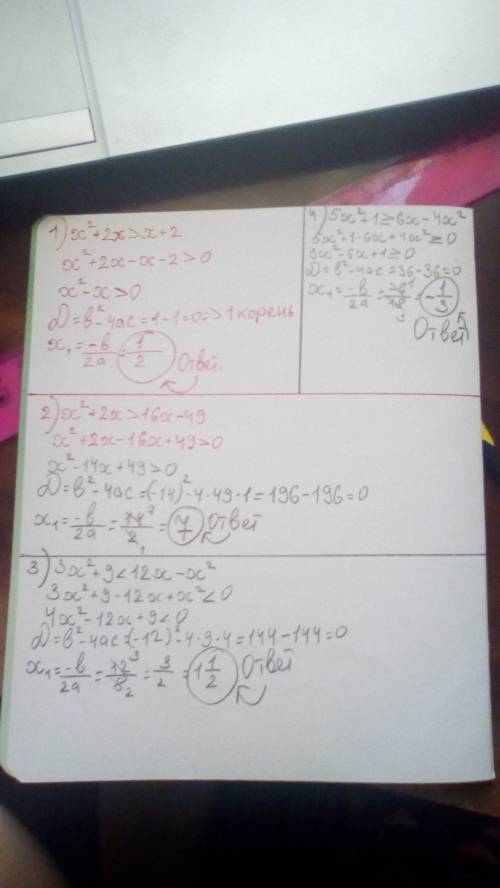 1) x²+2x>x+2
x²+2x-x-2>0
x²-x>0
D=b²-4ac=1-1=0=>1 корень
x₁=-b/2a=1/2 Ответ.
4) 5x²+1≥6x-4x²
5x²+1-6x+4x²≥0
9x²-6x+1≥0
D=b²-4ac=36-36=0
x₁=-b/2a= =-1/3
Ответ
2) x²+2x>16x-49
x²+2x-16x+49>0
x²-14x+49>0
D=b²-4ac=(-14)²-4·49·1=196-196=0
x₁=-b/2a=14/2=7 Ответ
3) 3x²+9<12x-x²
3x²+9-12x+x²<0
4x²-12x+9<0
D=b²-4ac=(-12)²-4·9·4=144-144=0
x₁=-b/2a=12/8=3/2=1 1/2 Ответ